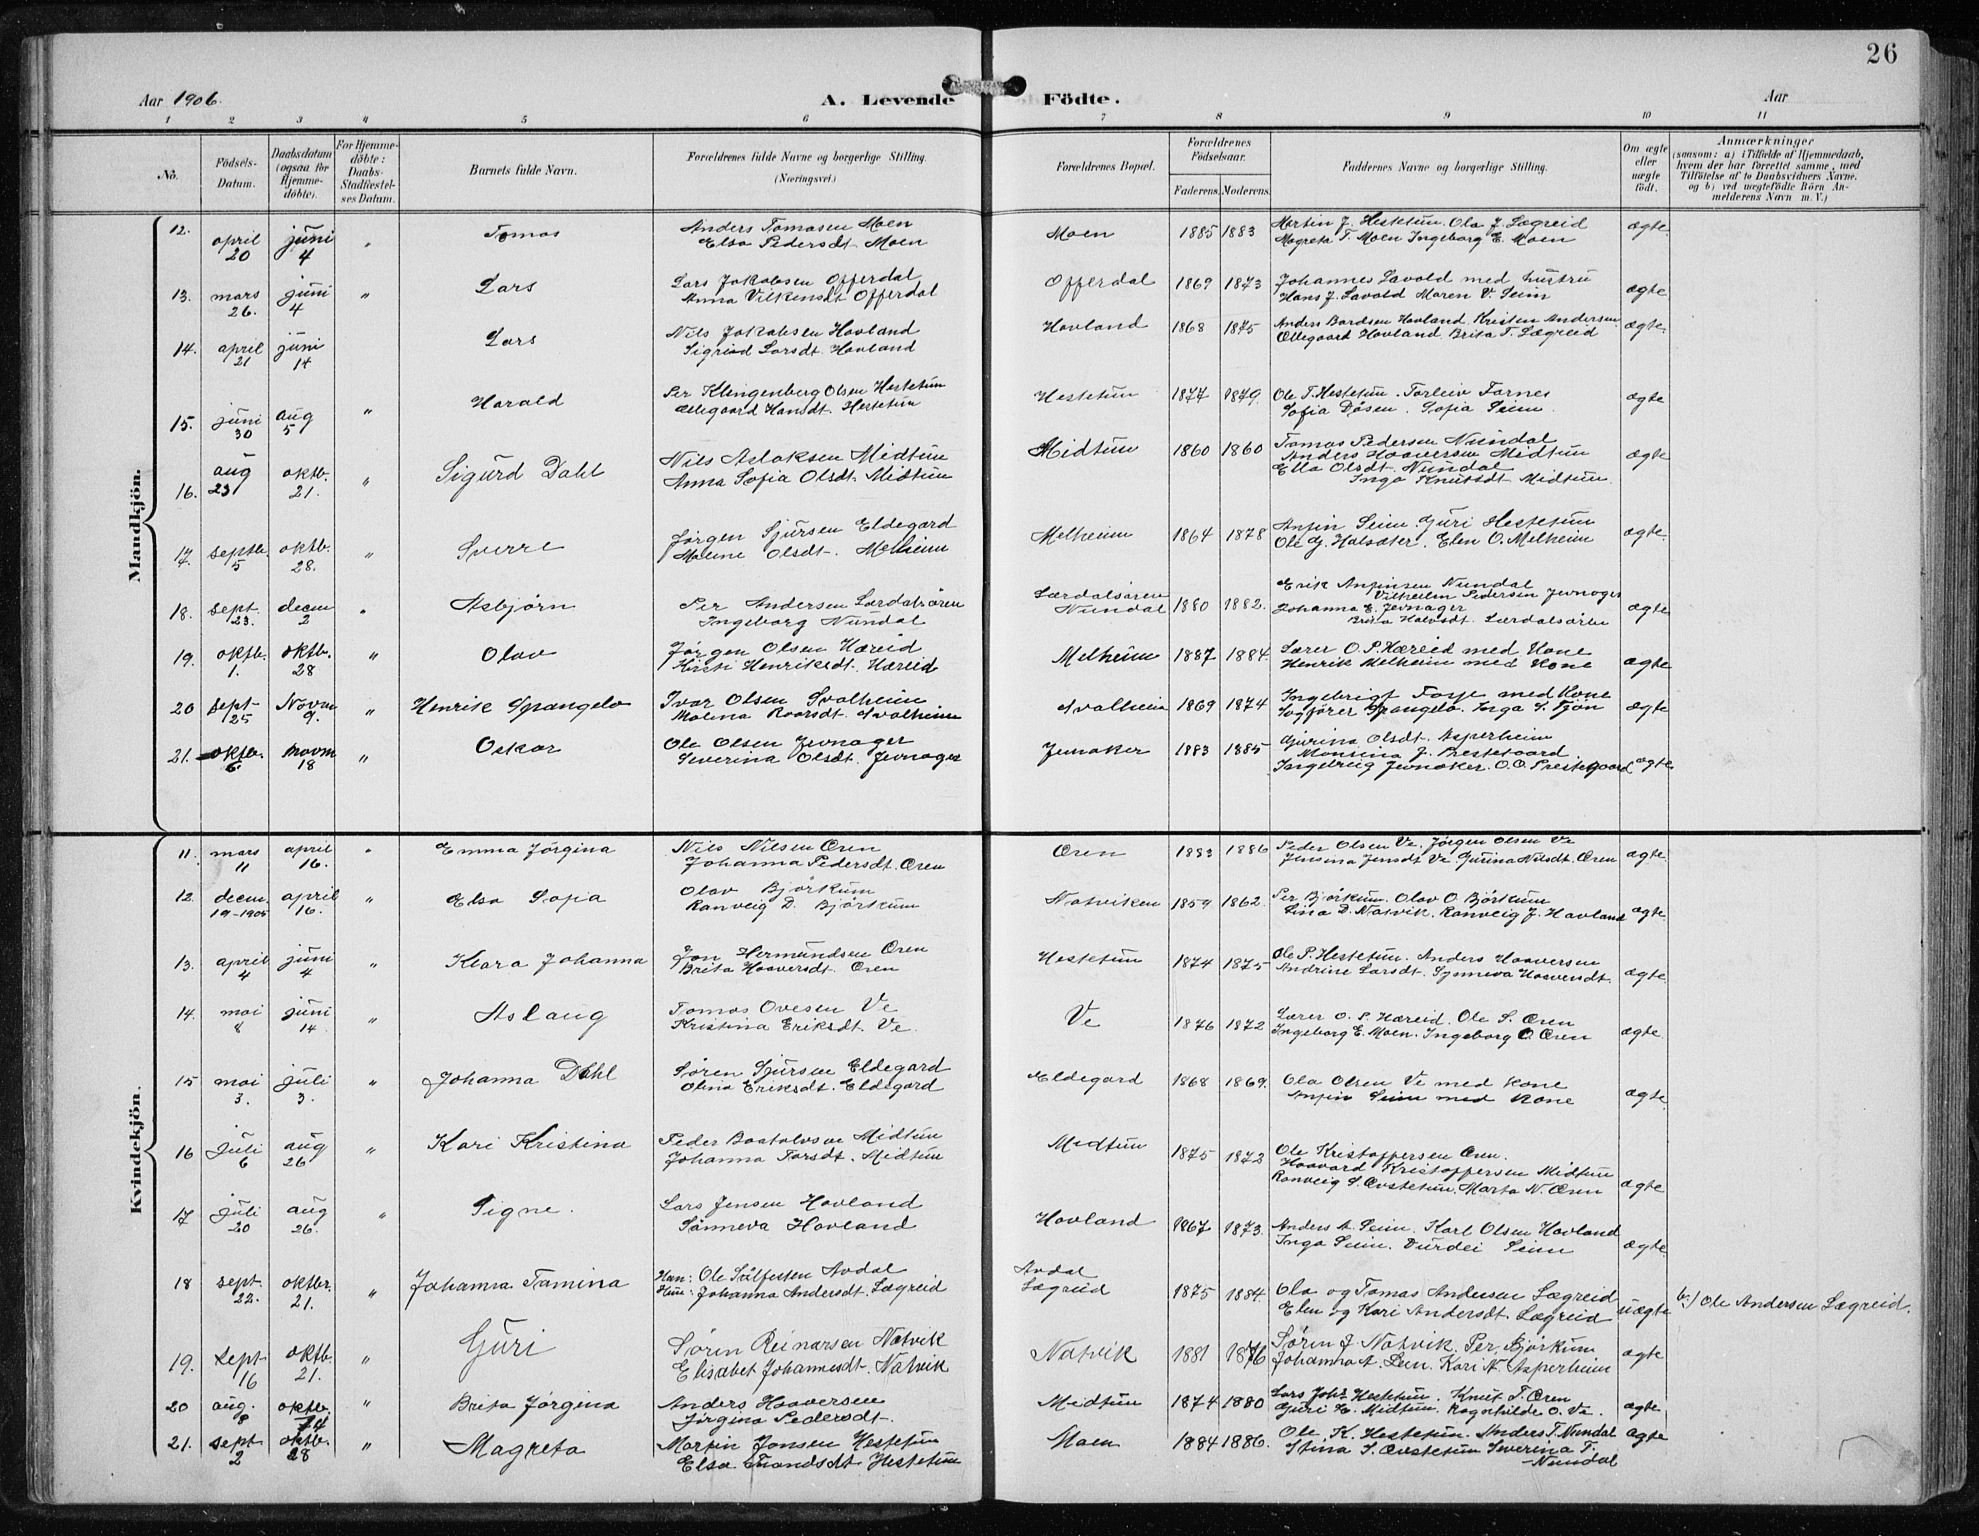 26
Aar 1906.
A. Levende Födte.
Aar
1 2 3 4 5 6 7 8 9 10 11
No.
Födsels-
Datum.
Daabsdatum
(ogsaa for
Hjemme-
döbte).
For Hjemme-
döbte:
Daabs-
Stadfæstel-
ses Datum.
Barnets fulde Navn.
Forældrenes fulde Navne og borgerlige Stilling.
(Næringsvei.)
Forældrenes Bopæl.
Forældrenes
Födselsaar.
Faderens. Moderens.
Faddernes Navne og borgerlige Stilling.
Om ægte
eller
uægte
födt.
Anmærkninger
(saasom: a) i Tilfælde af Hjemmedaab,
hvem der har forrettet samme, med
Tilföielse af to Daabsvidners Navne.
og b) ved uægtefödte Börn An-
melderens Navn m. V.)
Mandkjön.
12. april 20 juni 4 " Tomas Anders Tomasen Moen Moen 1885 1883 Martin J. Hestetun. Ola J. Lægreid ægte
Elsa Pedersdt. Moen Magreta T. Moen Ingeborg E. Moen
13. mars 26. juni 4 " Lars Lars Jakobsen Offerdal Offerdal 1869 1873 Johannes Lavold med hustru ægte
Anna Vilkensdt Offerdal Hans J. Lavold Maren V. Seim
14. april 21 juni 14 " Lars Nils Jakobsen Hovland Hovland 1868 1875 Anders Bardsen Hovland Kristen Andersen ægte
Sigrid Larsdt. Hovland Ollegaard Hovland Brita T. Lægreid
15. juni 30 aug 5 " Harald Per Klingenberg Olsen Hestetun Hestetun 1877 1879. Ole P. Hestetun. Torleiv Farnes ægte
Ollegaard Hansdt. Hestetun Sofia Døsen. Sofia Seim.
16. aug 23 oktb. 21. " Sigurd Dahl Nils Aslaksen Midtun Midtun 1860 1860 Tomas Pedersen Nundal ægte
Anna Sofia Olsdt. Midtun Anders Haaversen Midtun
Ella Olsdt Nundal
Inga Knutsdt Midtun.
17. septb. 5 oktb. 28. " Sverre Jørgen Sjursen Eldegard Melheim 1864 1878 Anfin Seim Guri Hestetun ægte.
Malene Olsdt. Melheim Ole G. Halsæter. Elen O. Melheim
18. sept. 23. decm 2 " Asbjørn Per Andersen Lærdalsøren Lærdalsøren 1880 1882. Erik Anfinsen Nundal ægte
Ingeborg Nundal Nundal Vilhelm Pedersen Jevnager
Johanna E. Jevnager
Brita Halvsdt. Lærdalsøren
19. oktb. 1. oktb. 28 " Olav Jørgen Olsen Hæreid Melheim 1887 1884. Lærer O. P. Hæreid med Kone ægte
Kirsti Henriksdt. Hæreid Henrik Melheim med Kone
20 sept- 25 Novm 9. " Henrik Spangelo Ivar Olsen Svalheim Svalheim 1869 1874 Ingebrigt Forje med Kone ægte
Malena Roarsdt. Svalheim Sagfører Spangelo. Inga S. Tjön
21. oktb. 6 novm 18 " Oskar Ole Olsen Jevnager Jevnaker 1883 1885 Gjurina Olsdt. Asperheim ægte
Severina Olsdt. Jevnager Monsina J. Prestegaard
Ingebrig Jevnaker. O. O. Prestegaard
Kvindekjön.
11. mars 11 april 16. " Emma Jörgina Nils Nilsen Øren Øren 1883 1886 Peder Olsen Ve. Jörgen Olsen Ve ægte
Johanna Pedersdt. Øren Jensina Jensdt Ve. Gurina Nilsdt. Øren
12. decm. 19-1905 april 16. " Elsa Sofia Olav Björkum Natviken 1859 1862. Per Björkum. Olav O. Björkum ægte.
Ranveig D. Björkum Lina D. Natvik. Ranveig J. Hovland
13. april 4 juni 4 " Klara Johanna Jon Hermundsen Øren Hestetun 1874 1875 Ole P. Hestetun. Anders Haaversen ægte
Brita Haaversdt. Øren Andrine Larsdt. Synneva Haaversdt.
14. mai 8 juni 14. " Aslaug Tomas Ovesen Ve Ve 1876 1872 Lærer O. P. Hæreid. Ole S. Øren ægte.
Kristina Eriksdt. Ve. Ingeborg E. Moen. Ingeborg O. Øren
15 mai 3. juli 3. " Johanna Dahl Søren Sjursen Eldegard Eldegard 1868 1869. Ola Olsen Ve med Kone ægte.
Olina Eriksdt. Eldegard Anfin Seim med Kone
16 juli 6 aug 26 " Kari Kristina Peder Baatolvsen Midtun Midtun 1875 1872 Ole Kristoffersen Øren. ægte
Johanna Larsdt. Midtun Haavard Kristoffersen Midtun
Ranveig S. Øvstetun. Marta N. Øren
17 juli 20 aug 26. " Signe. Lars Jensen Hovland Hovland 1867 1873. Anders A. Seim. Karl Olsen Hovland ægte.
Sönneva Hovland Inga Seim. Durdei Seim
18 sept. 22. oktbr. 21. " Johanna Tomina Han: Ole Sølfesten Avdal Avdal 1875 1884. Ola og Tomas Andersen Lægreid uægte b.) Ole Andersen Lægreid.
Hun: Johanna Andersdt. Lægreid Lægreid Elen og Kari Andersdt. Lægreid
19. sept. 16 oktb. 21. " Guri Sørin Reinarsen Natvik Natvik 1881 1876 Sørin J. Natvik. Per Bjørkum ægte
Elisabet Johannesdt. Natvik Johanna A. Lem. Kari N. Asperheim
20 aug. 8 oktb. 14 " Brita Jörgina Anders Haaversen Midtun 1874 1880 Lars Johs Hestetun. Knut T. Øren ægte.
Jörgina Pedersdt. Guri H. Midtun. Ragnhilde O. Ve.
21. sept 2 oktb. 28 " Magreta Martin Jonsen Hestetun Moen 1884 1886. Ole K. Hestetun. Anders T. Nundal ægte
Elsa Trondsdt Hestetun Stina S. Øvstetun Severina T.
Nundal